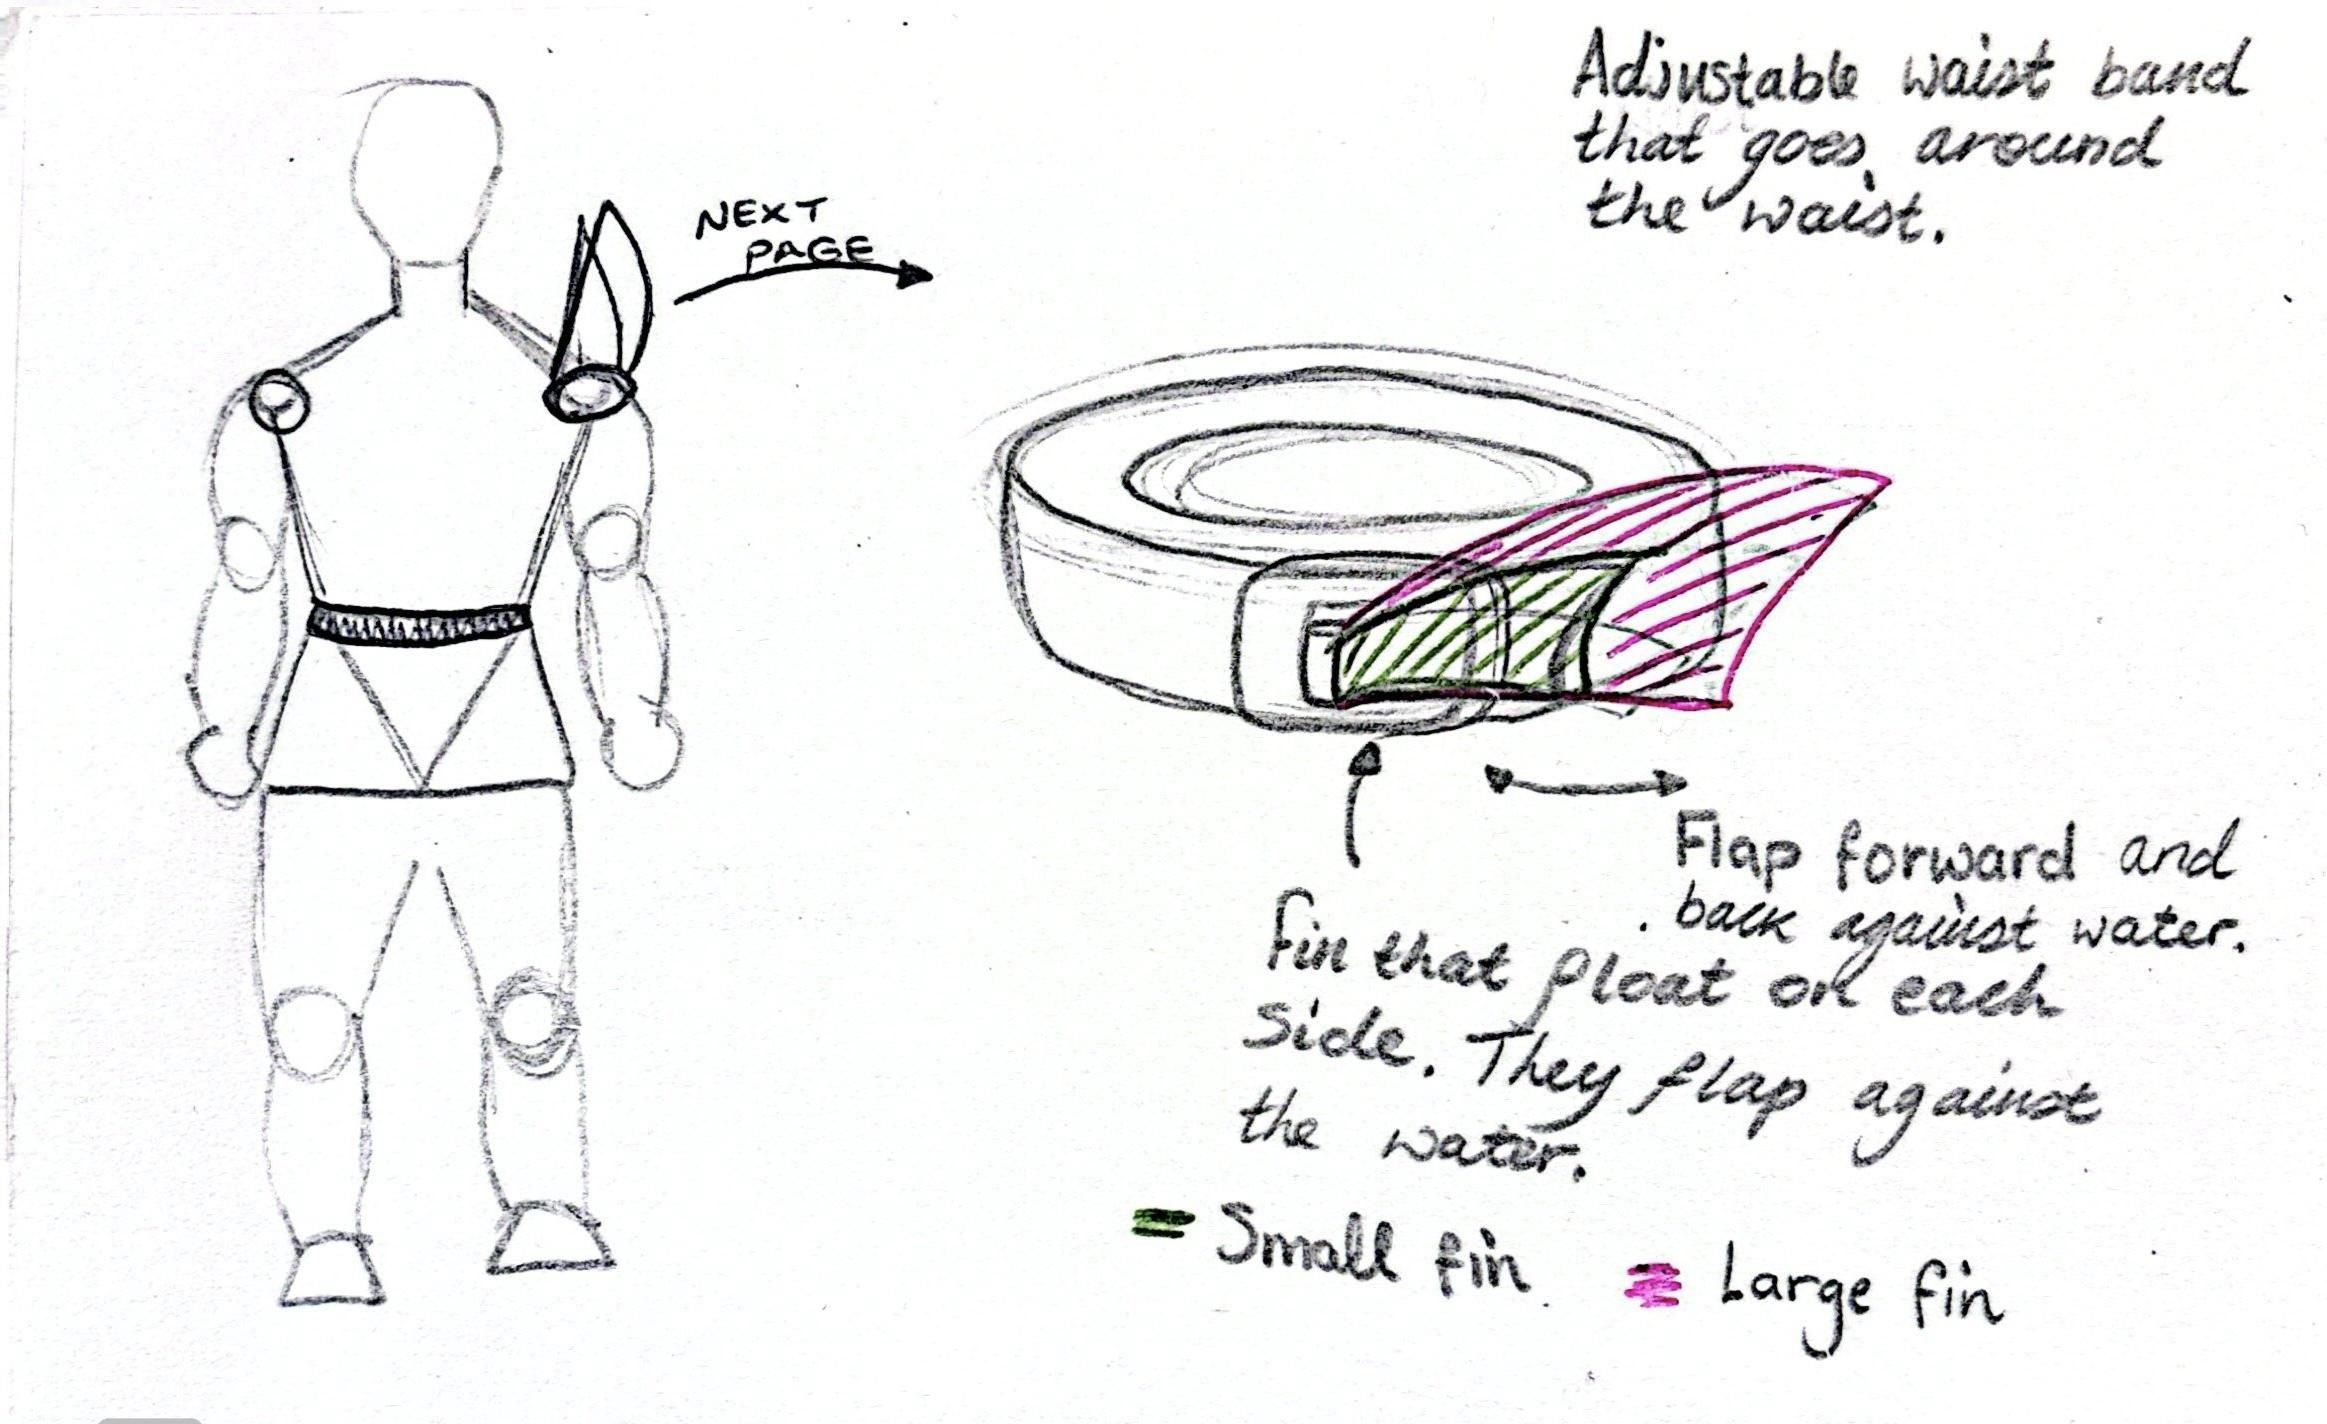 Adjustable waist band
that goes around
the waist.
NEXT
PAGE
Flap forward and
back against water.
Fin that float on each
Side. They flap against
the water.
Small fin
Large fin